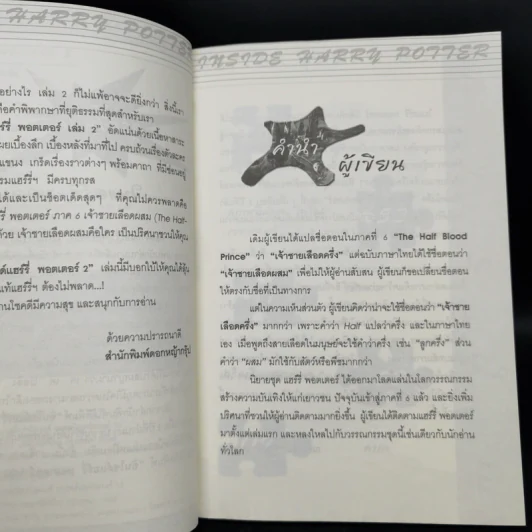 HARRY POTTER
อย่างไร เล่ม 2 ก็ไม่แพ้อาจจะดียิ่งกว่า สิ่งนี้เรา
คือคำพิพากษาที่ยุติธรรมที่สุดสำหรับเรา
พอตเตอร์ เล่ม 2” อัดแน่นด้วยเนื้อหาสาระ
เผยเบื้องลึก เบื้องหลังที่มาที่ไป ครบถ้วนเรื่องตัวละคร
แขนง เกร็ดเรื่องราวต่างๆ พร้อมคาถา ที่มีซ่อนอยู่
มีครบทุกรส
ได้และเป็นช็อตเด็ดสุดๆ ที่คุณไม่ควรพลาดคือ
พอตเตอร์ ภาค 6 เจ้าชายเลือดผสม (The Half-
ด้วย เจ้าชายเลือดผสมคือใคร เป็นปริศนาชวนให้คุณ
แฮร์รี่ พอตเตอร์ 2” เล่มนี้มีบอกไว้ให้คุณได้ลุ้น
แท้แฮร์รี่ฯ ต้องไม่พลาด...!
านโชคดีมีความสุข และสนุกกับการอ่าน
ด้วยความปรารถนาดี
สำนักพิมพ์ดอกหญ้ากรุ๊ป
INSIDE HARRY POTTER
คำนำ
ผู้เขียน
เดิมผู้เขียนได้แปลชื่อตอนในภาคที่ 6 “The Half Blood
Prince” ว่า “เจ้าชายเลือดครึ่ง” แต่ฉบับภาษาไทยได้ใช้ชื่อตอนว่า
“เจ้าชายเลือดผสม” เพื่อไม่ให้ผู้อ่านสับสน ผู้เขียนก็ขอเปลี่ยนชื่อตอน
ให้ตรงกับชื่อที่เป็นทางการ
แต่ในความเห็นส่วนตัว ผู้เขียนคิดว่าน่าจะใช้ชื่อตอนว่า “เจ้าชาย
เลือดครึ่ง” มากกว่า เพราะคำว่า Half แปลว่าครึ่ง และในภาษาไทย
เอง เมื่อพูดถึงสายเลือดในมนุษย์จะใช้คำว่าครึ่ง เช่น “ลูกครึ่ง” ส่วน
คำว่า “ผสม” มักใช้กับสัตว์หรือพืชมากกว่า
นิยายชุด แฮร์รี่ พอตเตอร์ ได้ออกมาโลดแล่นในโลกวรรณกรรม
สร้างความบันเทิงให้แก่เยาวชน ปัจจุบันเข้าสู่ภาคที่ 6 แล้ว และยิ่งเพิ่ม
ปริศนาที่ชวนให้ผู้อ่านติดตามมากยิ่งขึ้น ผู้เขียนได้ติดตามแฮร์รี่ พอตเตอร์
มาตั้งแต่เล่มแรก และหลงใหลไปกับวรรณกรรมชุดนี้เช่นเดียวกับนักอ่าน
ทั่วโลก